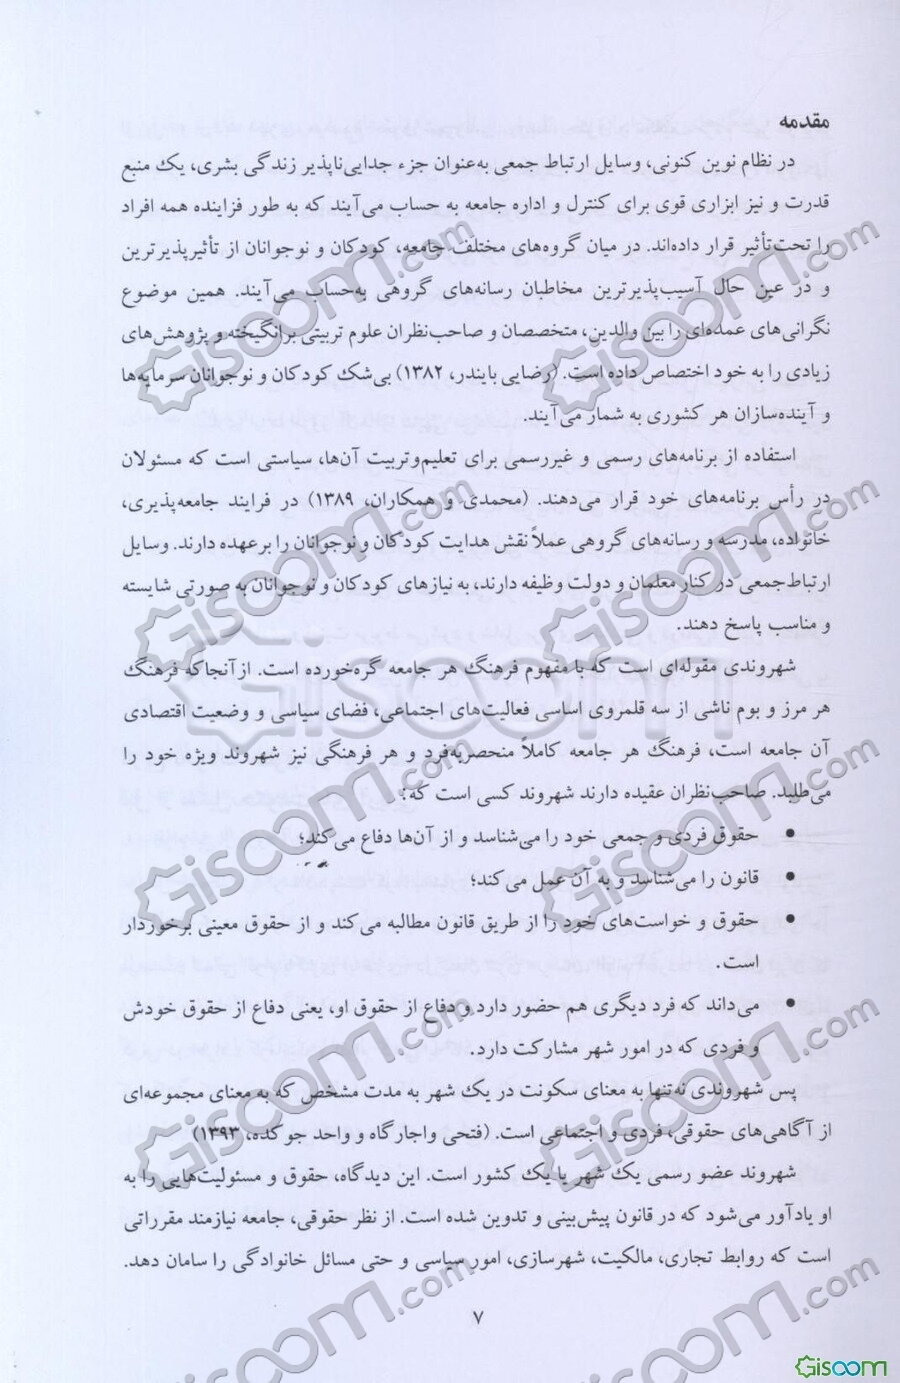 مقدمه
در نظام نوین کنونی، وسایل ارتباط جمعی به‌عنوان جزء جدایی‌ناپذیر زندگی بشری، یک منبع
قدرت و نیز ابزاری قوی برای کنترل و اداره جامعه به حساب می‌آیند که به طور فزاینده همه افراد
را تحت‌تأثیر قرار داده‌اند. در میان گروه‌های مختلف جامعه، کودکان و نوجوانان از تأثیرپذیرترین
و در عین حال آسیب‌پذیرترین مخاطبان رسانه‌های گروهی به‌حساب می‌آیند. همین موضوع
نگرانی‌های عمده‌ای را بین والدین، متخصصان و صاحب‌نظران علوم تربیتی برانگیخته و پژوهش‌های
زیادی را به خود اختصاص داده است. (رضایی بایندر، ۱۳۸۲) بی‌شک کودکان و نوجوانان سرمایه‌ها
و آینده‌سازان هر کشوری به شمار می‌آیند.
استفاده از برنامه‌های رسمی و غیررسمی برای تعلیم‌وتربیت آن‌ها، سیاستی است که مسئولان
در رأس برنامه‌های خود قرار می‌دهند. (محمدی و همکاران، ۱۳۸۹) در فرایند جامعه‌پذیری،
خانواده، مدرسه و رسانه‌های گروهی عملاً نقش هدایت کودکان و نوجوانان را برعهده دارند. وسایل
ارتباط‌جمعی در کنار معلمان و دولت وظیفه دارند، به نیازهای کودکان و نوجوانان به صورتی شایسته
و مناسب پاسخ دهند.
شهروندی مقوله‌ای است که با مفهوم فرهنگ هر جامعه گره‌خورده است. ازآنجاکه فرهنگ
هر مرز و بوم ناشی از سه قلمروی اساسی فعالیت‌های اجتماعی، فضای سیاسی و وضعیت اقتصادی
آن جامعه است، فرهنگ هر جامعه کاملاً منحصربه‌فرد و هر فرهنگی نیز شهروند ویژه خود را
می‌طلبد. صاحب‌نظران عقیده دارند شهروند کسی است که:
• حقوق فردی و جمعی خود را می‌شناسد و از آن‌ها دفاع می‌کند؛
• قانون را می‌شناسد و به آن عمل می‌کند؛
• حقوق و خواست‌های خود را از طریق قانون مطالبه می‌کند و از حقوق معینی برخوردار
است.
• می‌داند که فرد دیگری هم حضور دارد و دفاع از حقوق او، یعنی دفاع از حقوق خودش
و فردی که در امور شهر مشارکت دارد.
پس شهروندی نه‌تنها به معنای سکونت در یک شهر به مدت مشخص که به معنای مجموعه‌ای
از آگاهی‌های حقوقی، فردی و اجتماعی است. (فتحی واجارگاه و واحد چوکده، ۱۳۹۳)
شهروند عضو رسمی یک شهر یا یک کشور است. این دیدگاه، حقوق و مسئولیت‌هایی را به
او یادآور می‌شود که در قانون پیش‌بینی و تدوین شده است. از نظر حقوقی، جامعه نیازمند مقرراتی
است که روابط تجاری، مالکیت، شهرسازی، امور سیاسی و حتی مسائل خانوادگی را سامان دهد.
۷
Gisoom.com
Gisoom